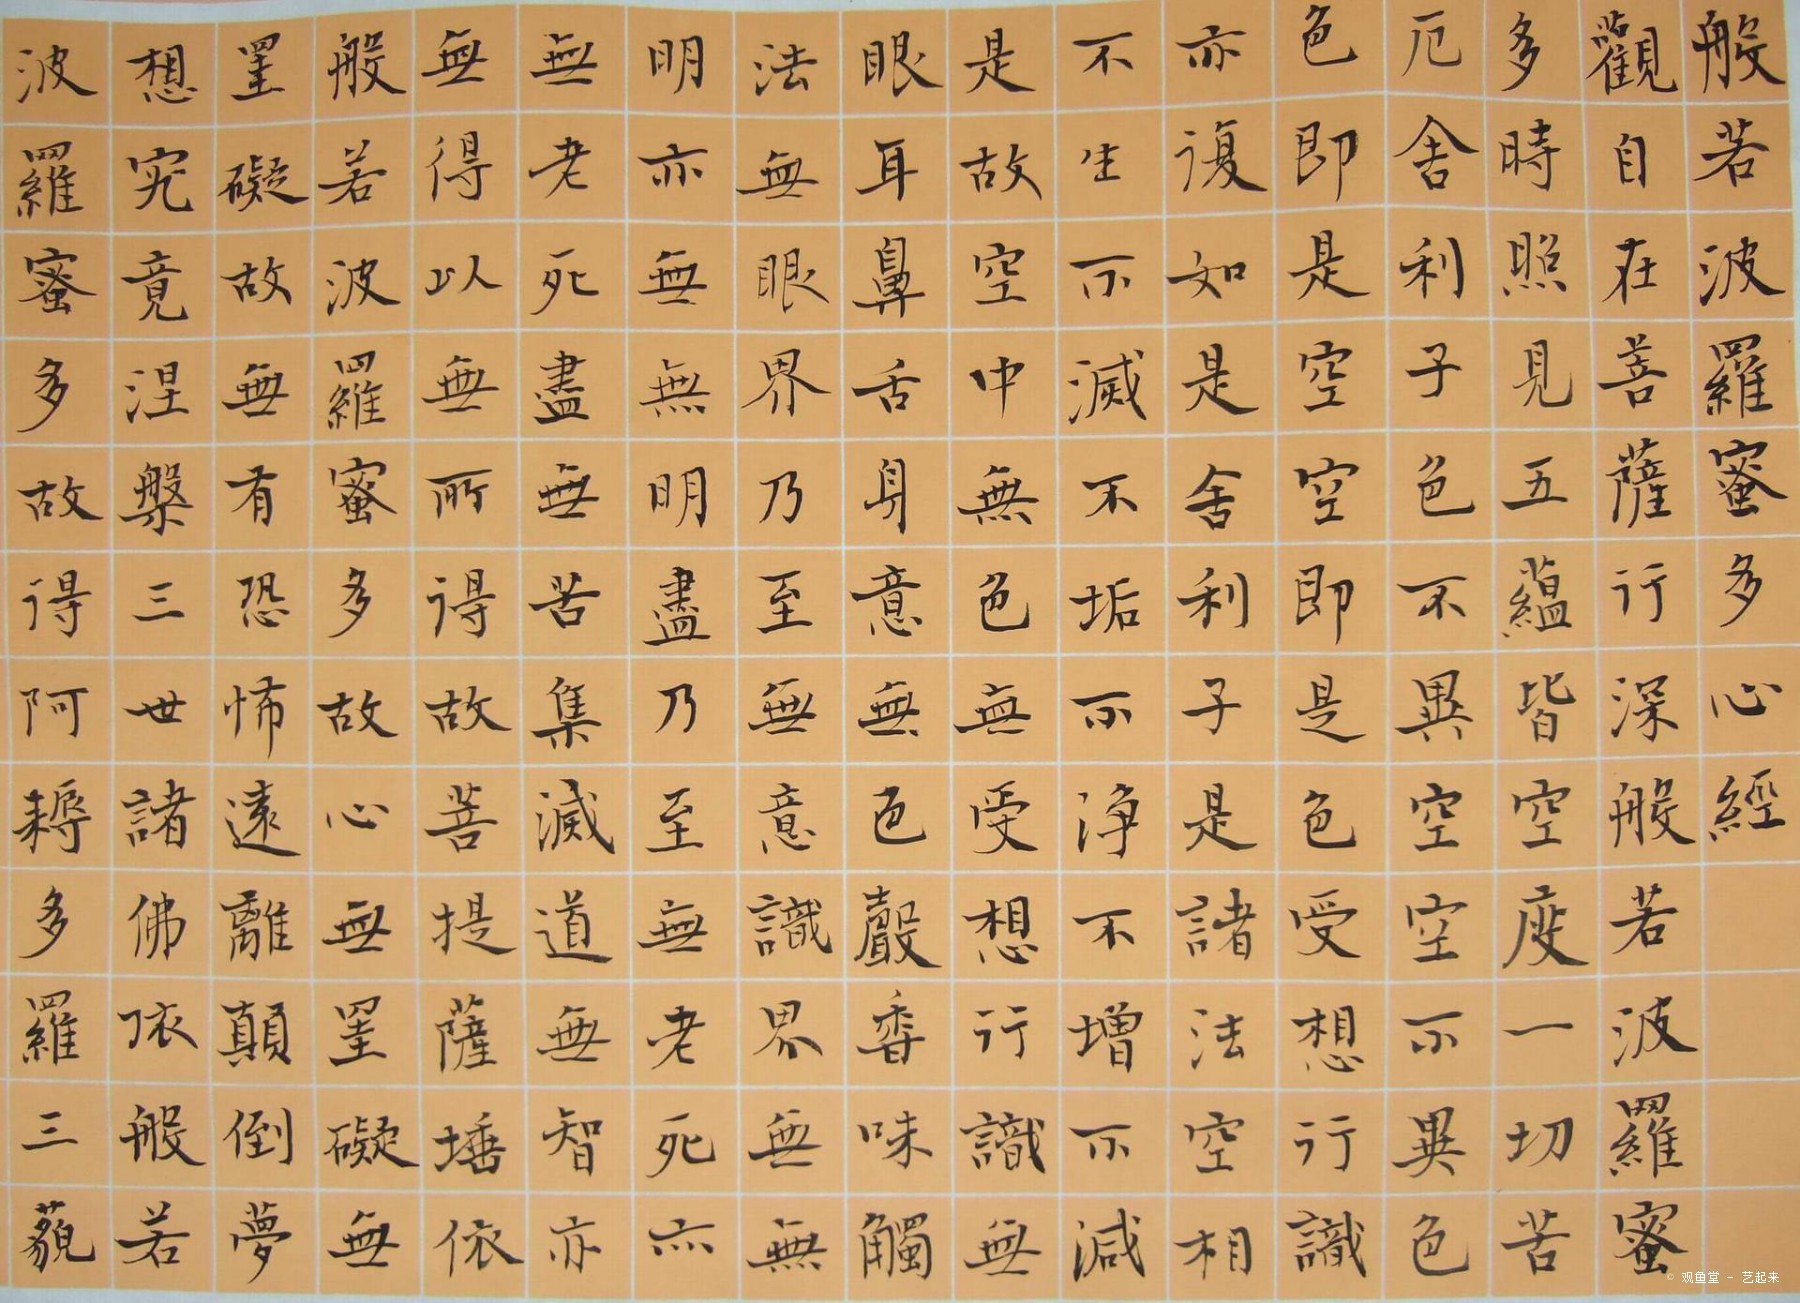 般若波羅蜜多心經
觀自在菩薩行深般若波羅蜜
多時照見五蘊皆空度一切苦
厄舍利子色不異空空不異色
色即是空空即是色受想行識
亦復如是舍利子是諸法空相
不生不滅不垢不淨不增不減
是故空中無色無受想行識無
眼耳鼻舌身意無色聲香味觸
法無眼界乃至無意識界無無
明亦無無明盡乃至無老死亦
無老死盡無苦集滅道無智亦
無得以無所得故菩提薩埵依
般若波羅蜜多故心無罣礙無
罣礙故無有恐怖遠離顛倒夢
想究竟涅槃三世諸佛依般若
波羅蜜多故得阿耨多羅三藐
© 观鱼堂 - 艺起来